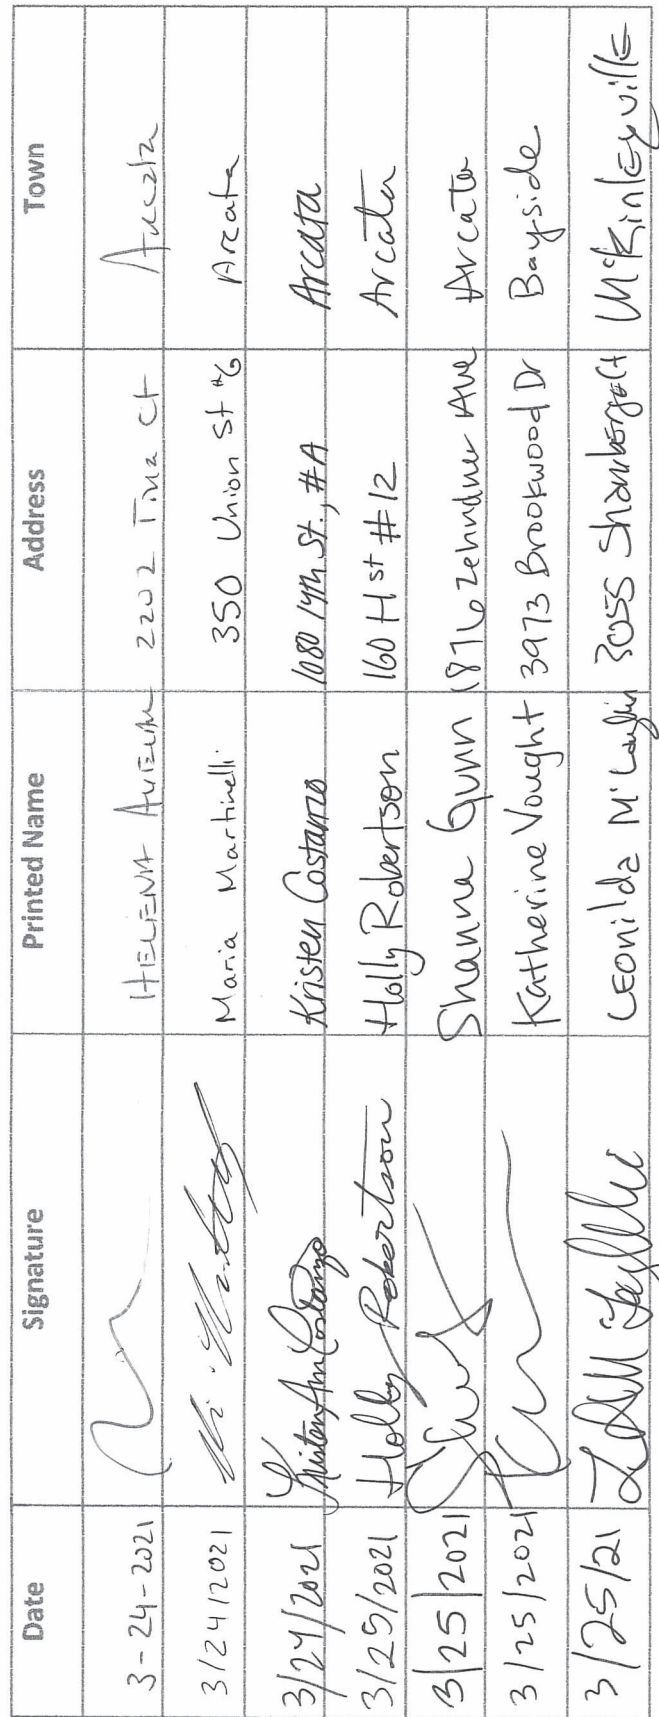 Date Signature Printed Name Address Town
3-24-2021 HELENA 2202 Tina Ct Arcata
3/24/2021 Maria Martinelli 350 Union St #6 Arcata
3/24/2021 Kristen Ann Costanzo Kristen Costanzo 1080 14th St., #A Arcata
3/25/2021 Holly Robertson Holly Robertson 160 H St #12 Arcata
3/25/2021 Shanna Gunn 1876 Zehndner Ave Arcata
3/25/2021 Katherine Vought 3973 Brookwood Dr Bayside
3/25/21 Leonilda McLaughlin 3055 Ct McKinleyville